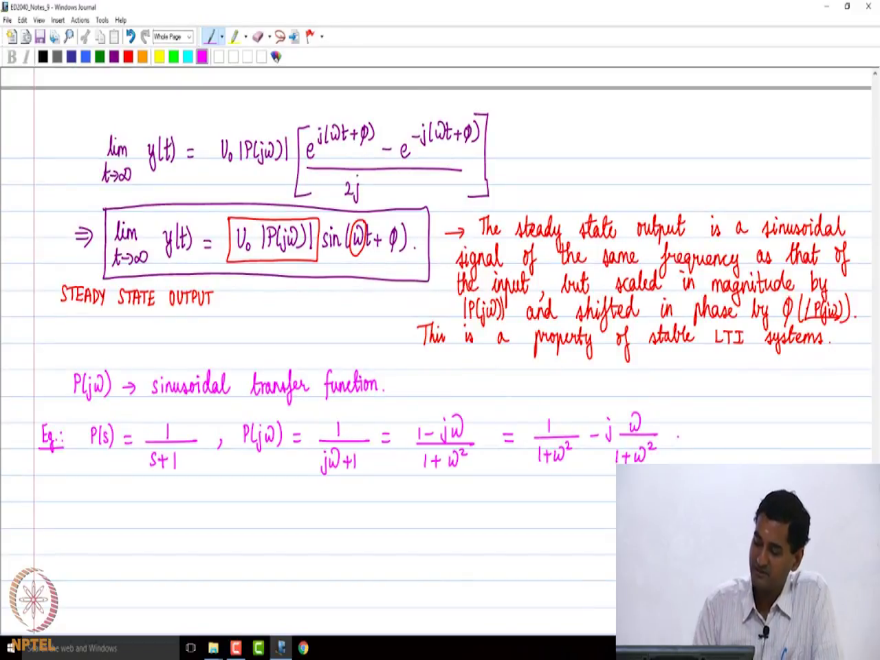 ED2040_Notes_9 - Windows Journal
File Edit View Insert Actions Tools Help
Whole Page
B I
lim t→∞ y(t) = U₀ |P(jω)| [ (e^{j(ωt+φ)} − e^{−j(ωt+φ)}) / 2j ]
⇒ lim t→∞ y(t) = U₀ |P(jω)| sin(ωt + φ).
STEADY STATE OUTPUT
→ The steady state output is a sinusoidal
signal of the same frequency as that of
the input, but scaled in magnitude by
|P(jω)| and shifted in phase by φ(∠P(jω)).
This is a property of stable LTI systems.
P(jω) → sinusoidal transfer function.
Eg.: P(s) = 1/(s+1) , P(jω) = 1/(jω+1) = (1−jω)/(1+ω²) = 1/(1+ω²) − j ω/(1+ω²) .
NPTEL
the web and Windows